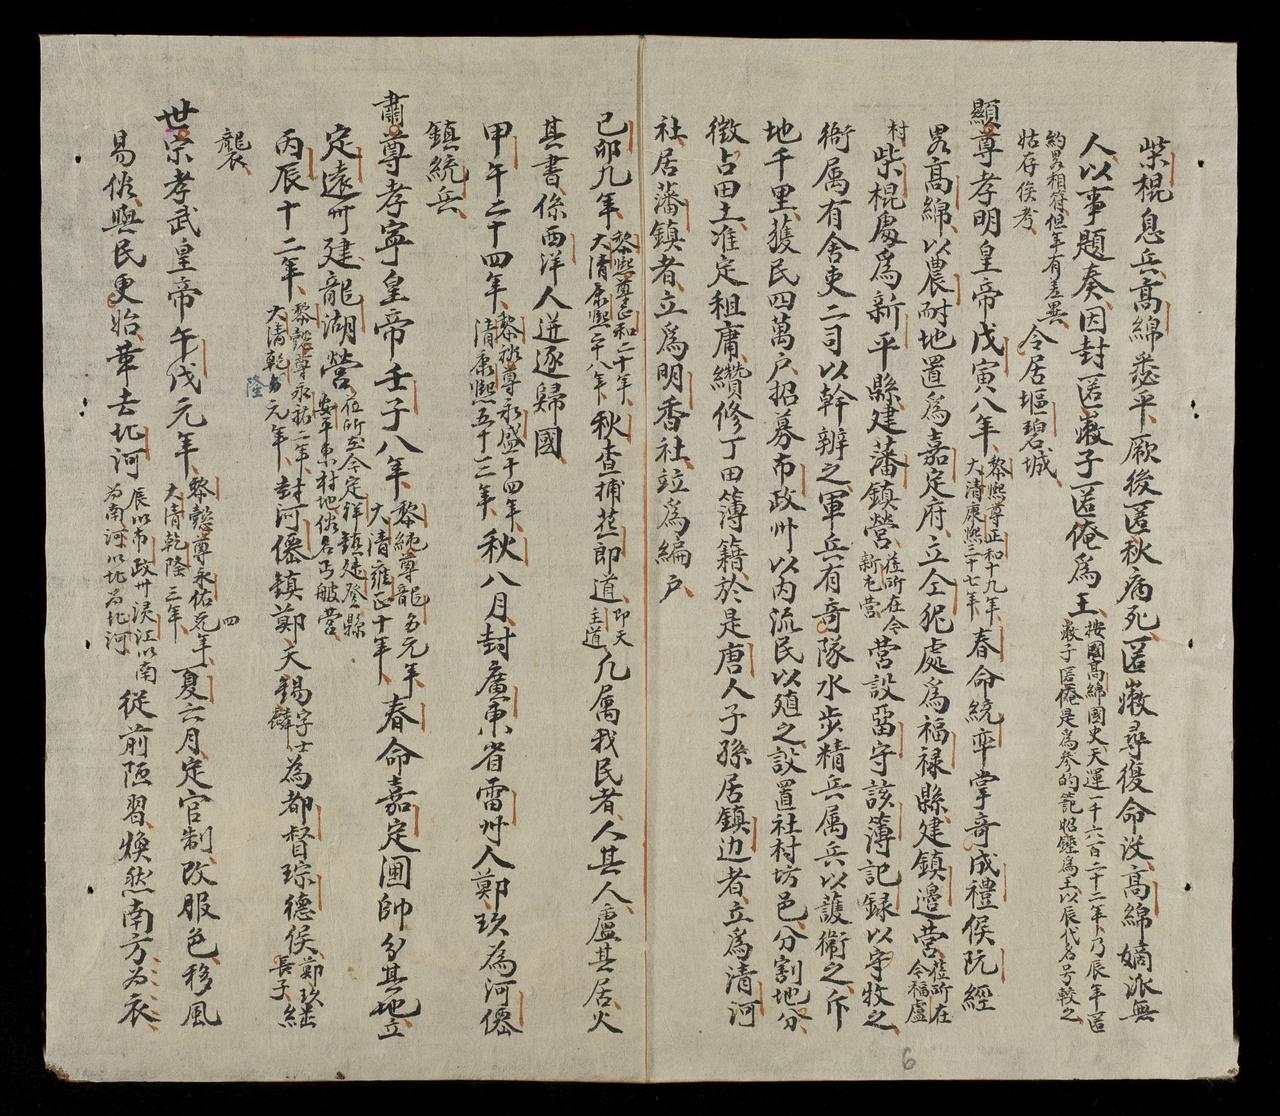 柴棍息兵高綿悉平厥後匿秋病死匿𢢼尋復命没高綿嫡派無
人以事題奏因封匿𢢼子匿俺爲王按國高綿國史天運一千六百二十二年乃辰年匿
𢢼子匿俺是爲参的記昭錘爲王以辰代名号較之
約畧相符但年有差異
姑存俟考 令居塸碧城
顯尊孝明皇帝戊寅八年黎熙尊正和十九年
大清康熙三十七年春命統率掌奇成禮侯阮經
畧高綿以農耐地置爲嘉定府立仝狔處爲福禄縣建鎮邊營莅所在
今福盧
村柴棍處爲新平縣建藩鎮營莅所在今
新屯营營設畱守該簿記録以守牧之
衙属有舍吏二司以幹辨之軍兵有奇隊水步精兵属兵以護衛之斥
地千里獲民四萬户招募布政卅以内流民以殖之設置社村坊邑分割地分
徵占田土准定租庸纘修丁田簿籍於是唐人子孫居鎮边者立爲清河
社居藩鎮者立爲明香社竝爲編户
己卯九年黎熙尊正和二十年
大清康熙三十八年秋查捕葚郎道即天
主道凡属我民者人其人廬其居火
其書係西洋人迸逐歸國
甲午二十四年黎裕尊永盛十四年
清康熙五十三年秋八月封廣東省雷州人鄭玖為河僊
鎮統兵
肅尊孝寧皇帝壬子八年黎純尊龍旵元年
大清雍正十年春命嘉定圃帥分其地立
定遠州建龍湖營位所在今定祥鎮建登縣
安平東村地俗名丐舨营
丙辰十二年黎懿尊永祐二年
大清乾隆元年封河僊鎮鄭天錫字士
麟為都督琮德侯鄭玖
長子継
襲
世宗孝武皇帝午戊元年黎懿尊永佑四元年
大清乾隆三年夏六月定官制改服色移風
易俗與民更始革去北河辰以布政州淚江以南
為南河以北為北河從前陋習煥然南方为衣
6